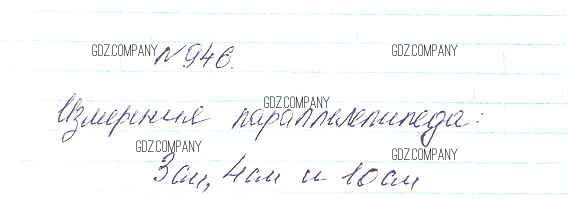 GDZ.COMPANY GDZ.COMPANY
№946.
GDZ.COMPANY
Измерения параллелепипеда:
GDZ.COMPANY GDZ.COMPANY
3см, 4см и 10см